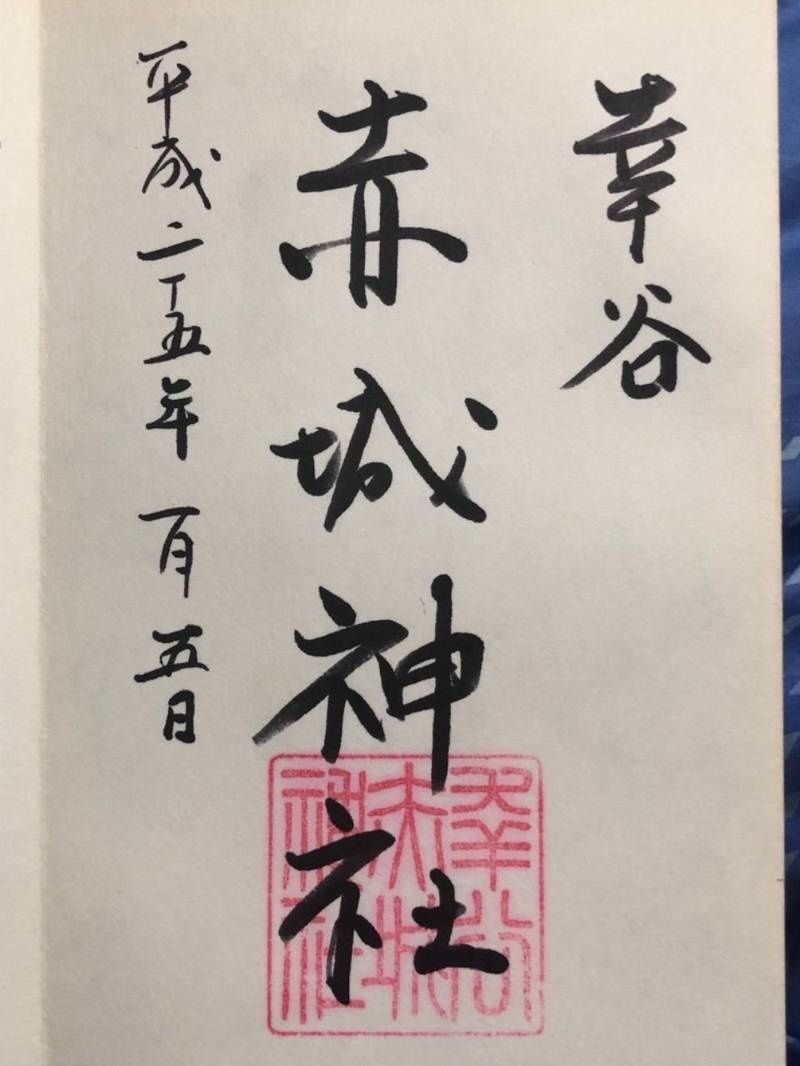 幸谷
赤城神社
平成二十五年一月五日
幸谷
赤城
神社